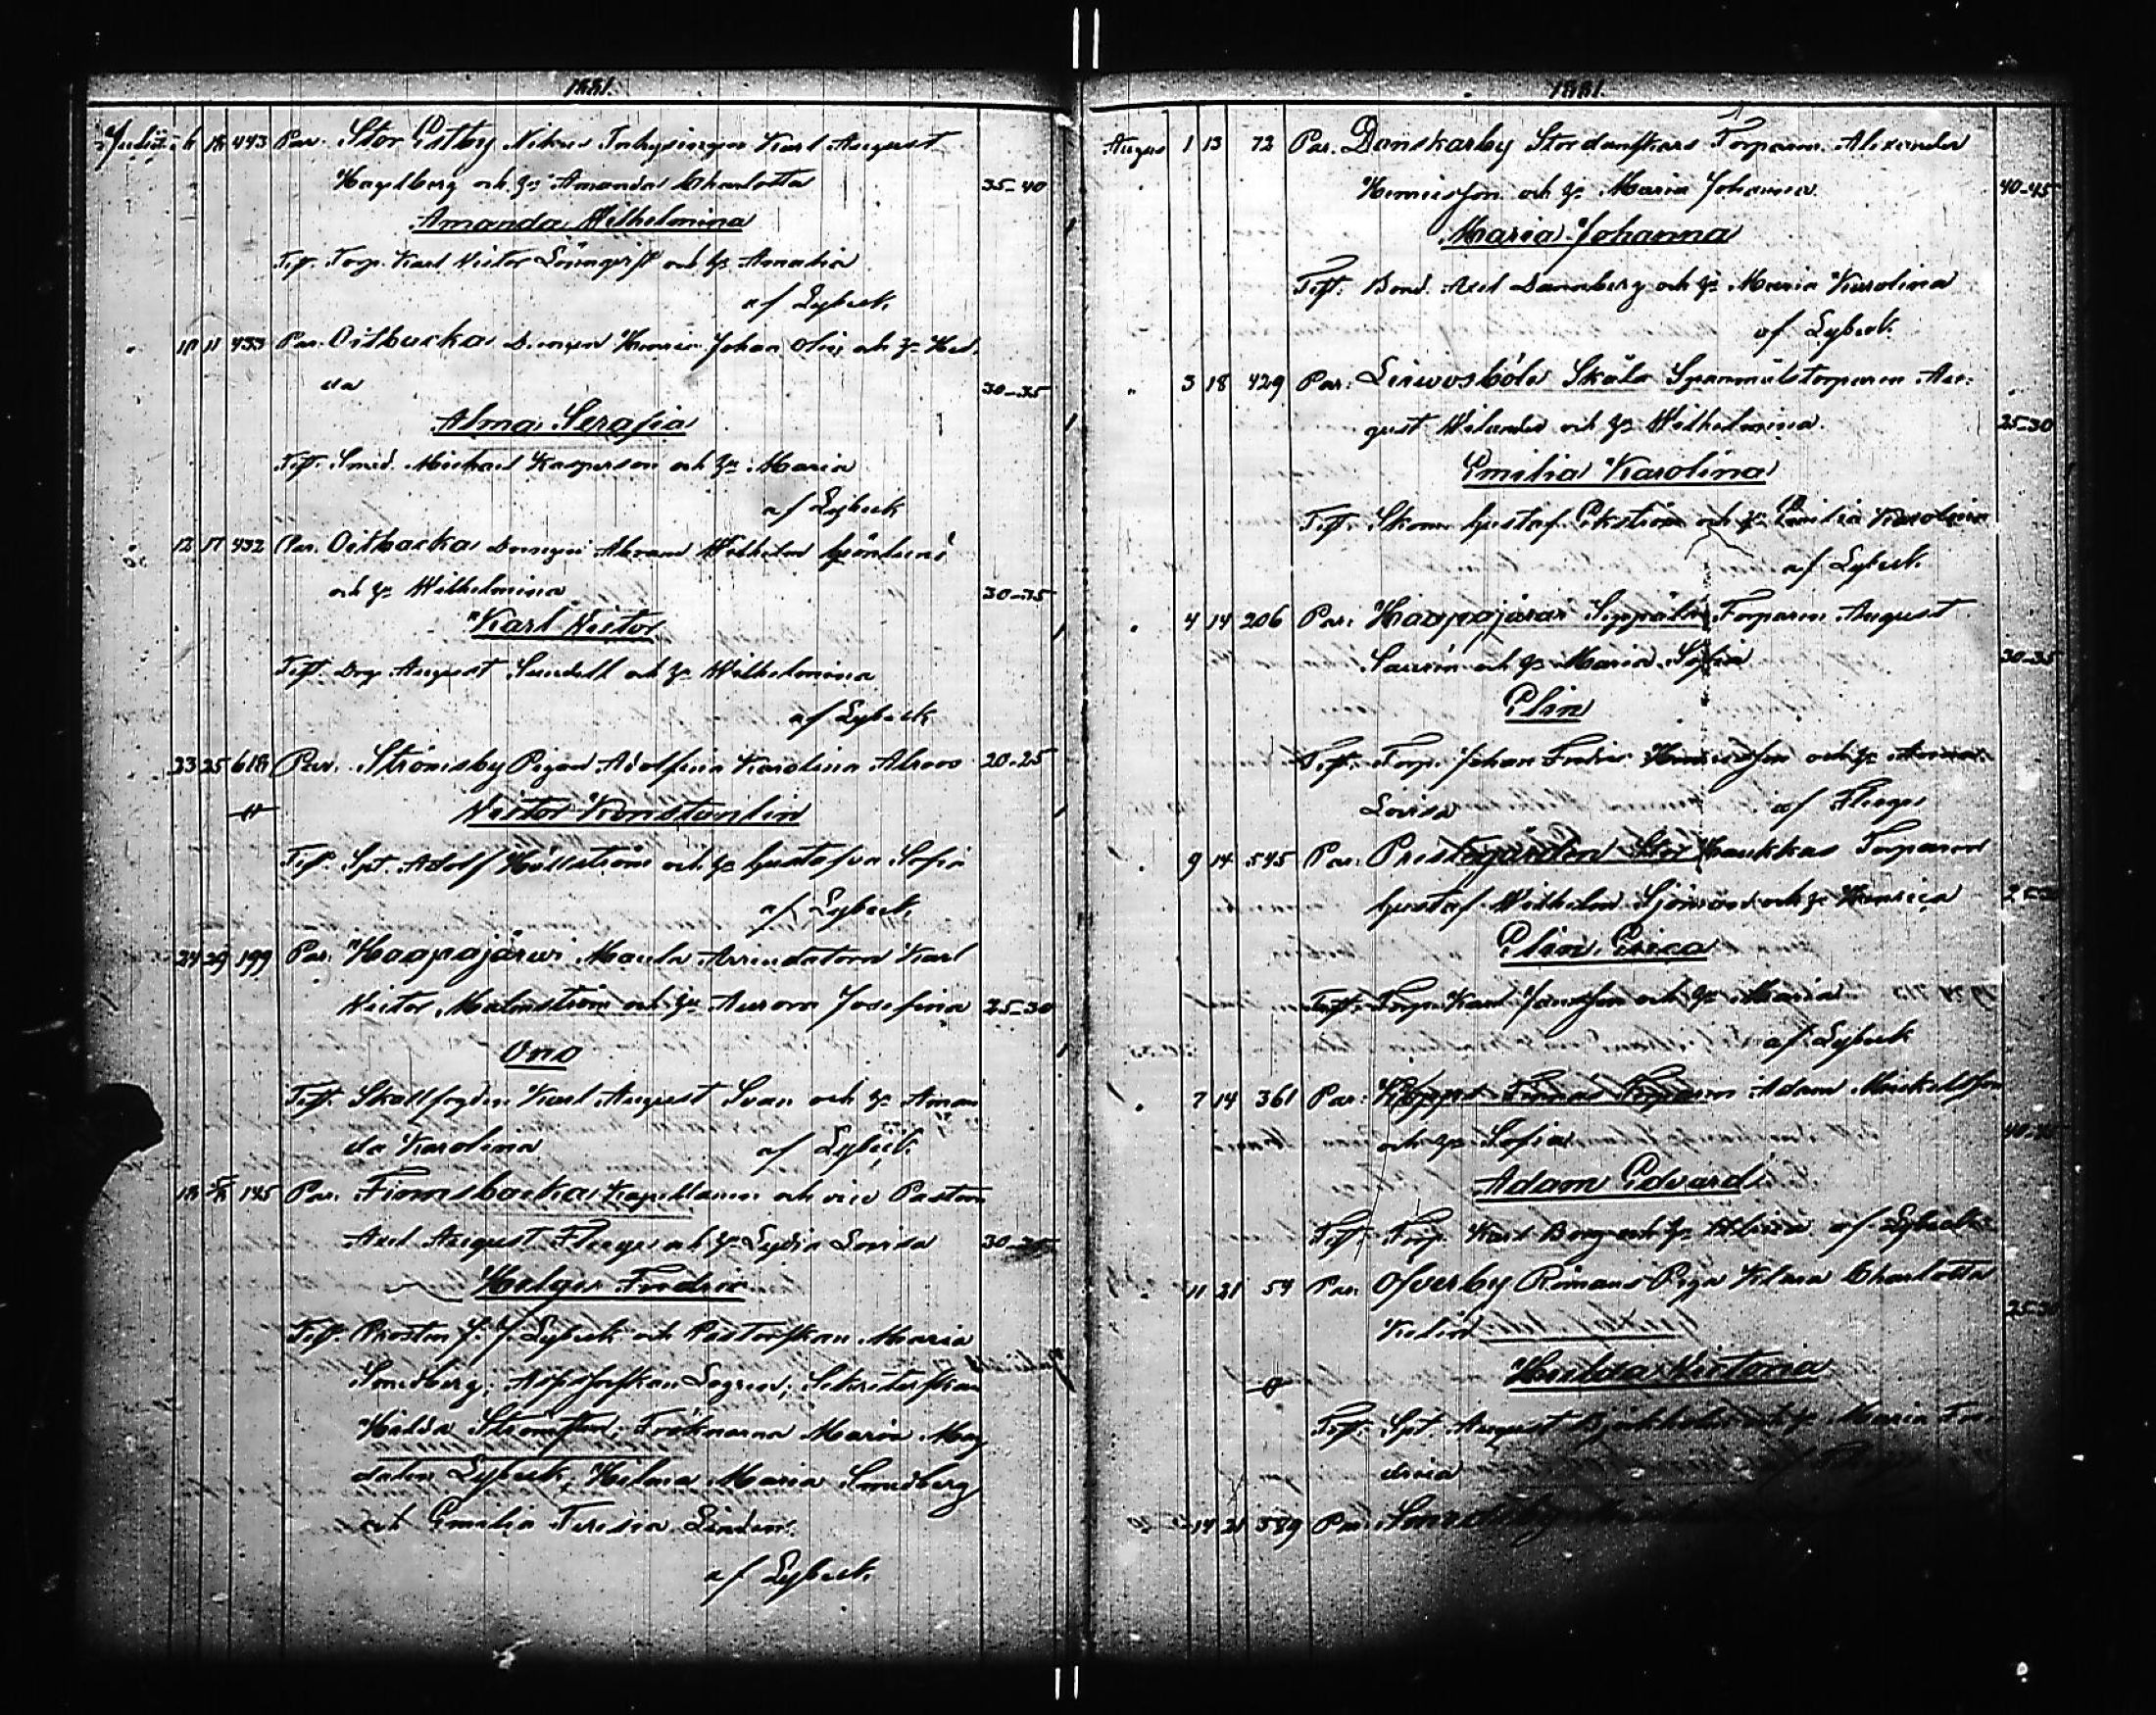 1881.
Julii 6 18 443 Par. Stor Estby Nikus Inhysingen Karl August
Hagelberg och h: Amanda Charlotta 35-40
Amanda Wilhelmina
Test. Torp. Karl Victor Lönnqvist och h: Amalia
af Lybeck.
10 11 433 Par. Oitbacka Drengen Henric Johan Olin och h: Hed-
da 30-35
Alma Serafia
Test. Smed. Michael Kasperson och h: Maria
af Lybeck
12 17 432 Par. Oitbacka Drengen Abram Wilhelm Grönlund
och h: Wilhelmina 30-35
Karl Victor
Test. Drg August Sundell och h: Wilhelmina
af Lybeck
23 25 618 Par. Strömsby Pigan Adolfina Karolina Alroos 20-25
Victor Konstantin
Test. Spt. Adolf Hällström och h: Gustafva Sofia
af Lybeck.
24 29 199 Par. Haapajärvi Maula Arrendatorn Karl
Victor Malmström och h: Aurora Josefina 25-30
Ono
Test. Skallfogden Karl August Svan och h: Aman
da Karolina af Lybeck.
18 145 Par. Finnsbacka Kapellanen och vice Pastorn
Axel August Fleege och h: Lydia Lovisa 30-35
Holger Fredric
Test. Prosten F. J. Lybeck och Pastorskan Maria
Smedberg, Assessorskan Segren, Sekreterskan
Hilda Strömsten, Fröknarna Maria Mag
dalen Lybeck, Helena Maria Smedberg
och Emilia Teresia Linden.
af Lybeck.
1881.
Augus 1 13 72 Par. Danskarby Stordanskars Torparen Alexander
Henricsson och h: Maria Johanna 40-45
Maria Johanna
Test. Bond. Axel Danneberg och h: Maria Karolina
af Lybeck.
" 3 18 429 Par: Leivosböle Skåla Spannmålstorparen Au-
gust Welander och h: Wilhelmina. 25-30
Emilia Karolina
Test. Skom. Gustaf Ekström och h: Emilia Karolina
af Lybeck.
" 4 14 206 Par: Haapajärvi Seppälä Torparen August
Saurén och h: Maria Sofia 30-35
Elin
Test. Torp. Johan Fredric Henricsson och h: Anna
Lovisa af Fleege
9 14 545 Par: Prestegården Stor Haukkas Torparen
Gustaf Wilhelm Sjöman och h: Henrica
Elin Erica
Test. Torp. Karl Jansson och h: Maria
af Lybeck
" 7 14 361 Par: Torparen Adam Mickelsson
och h: Sofia
Adam Edvard
Test. Torp. Karl Borg och h: af Lybeck
11 21 59 Par. Ofverby Römans Pigan Klara Charlotta
25-30
Hulda Victoria
Test. Spt. August och h: Maria Fre-
drica
14 21 589 Par. Smedsby